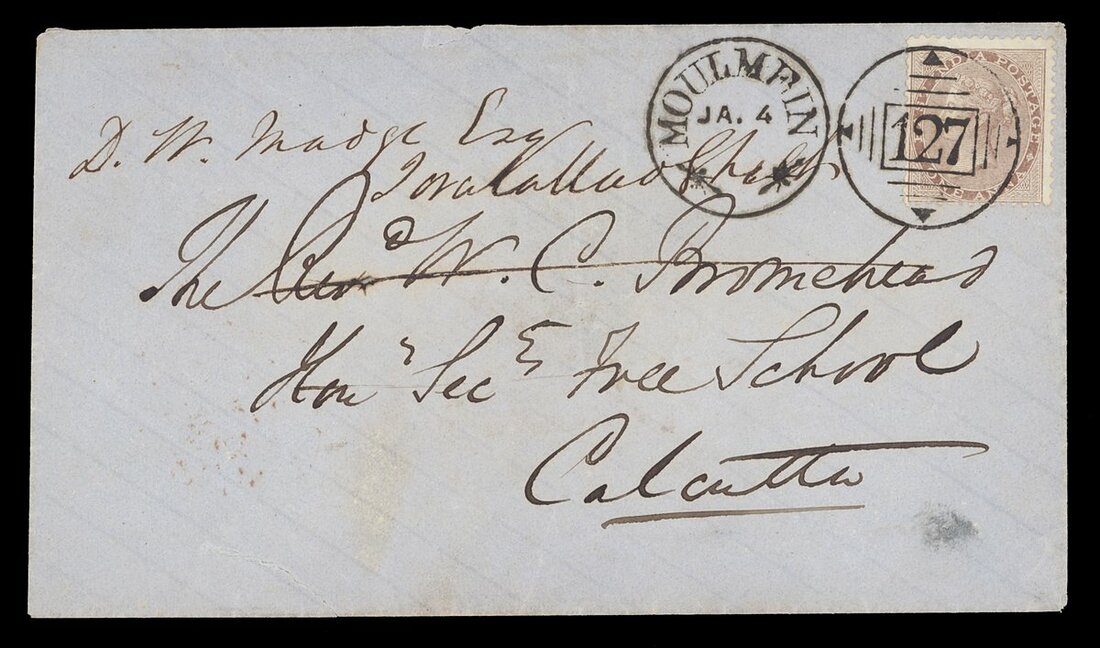 MOULMEIN
JA. 4
INDIA POSTAGE
127
ONE ANNA
D. W. Madge Esq
The Revd W. C. Bromehead
Hon Sec Free School
Calcutta